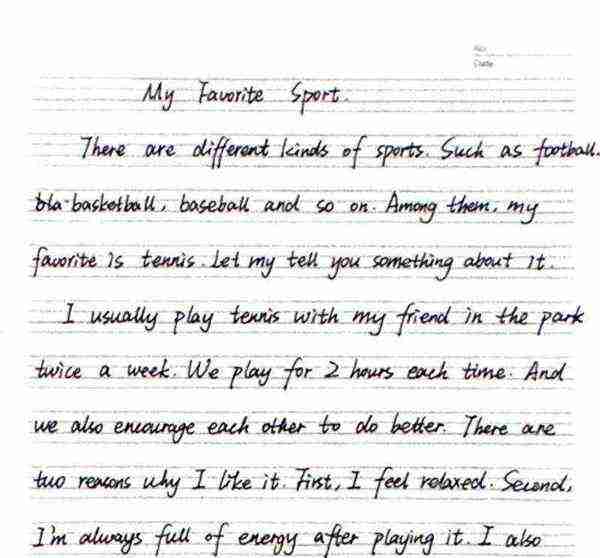 No.
Date
My Favorite Sport.
There are different kinds of sports. Such as football.
bla basketball, baseball and so on. Among them, my
favorite is tennis. Let my tell you something about it.
I usually play tennis with my friend in the park
twice a week. We play for 2 hours each time. And
we also encourage each other to do better. There are
two reasons why I like it. First, I feel relaxed. Second,
I'm always full of energy after playing it. I also